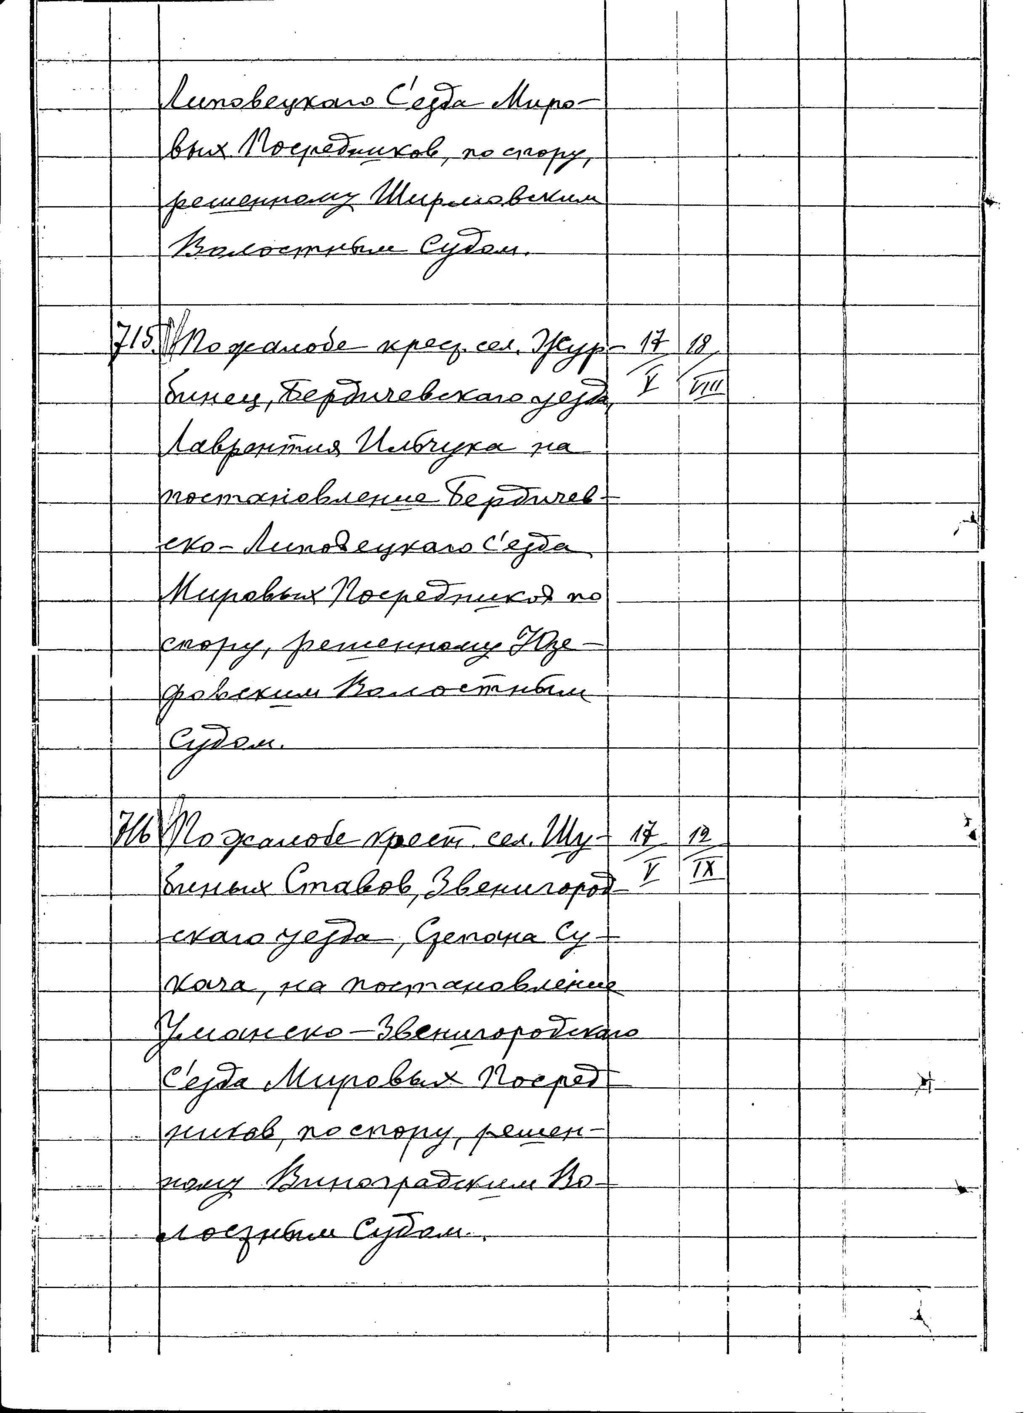 Липовецкаго С'езда Миро-
вых Посредников, по спору,
решенному Ширмовским
Волостным Судом.
715. По жалобе крес. сел. Жур- 17/V 18/VIII
бинец, Бердичевскаго уезда,
Лаврентия Ильчука на
постановление Бердичев-
ско-Липовецкаго С'езда
Мировых Посредников по
спору, решенному Юзе-
фовским Волостным
Судом.
716 По жалобе крест. сел. Шу- 17/V 12/IX
биных Ставов, Звенигород-
скаго уезда, Степана Су-
кача, на постановление
Уманско-Звенигородскаго
С'езда Мировых Посред-
ников, по спору, решен-
ному Виноградским Во-
лостным Судом.